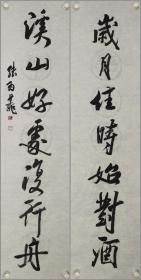 歲月佳時始對酒
溪山好處復行舟